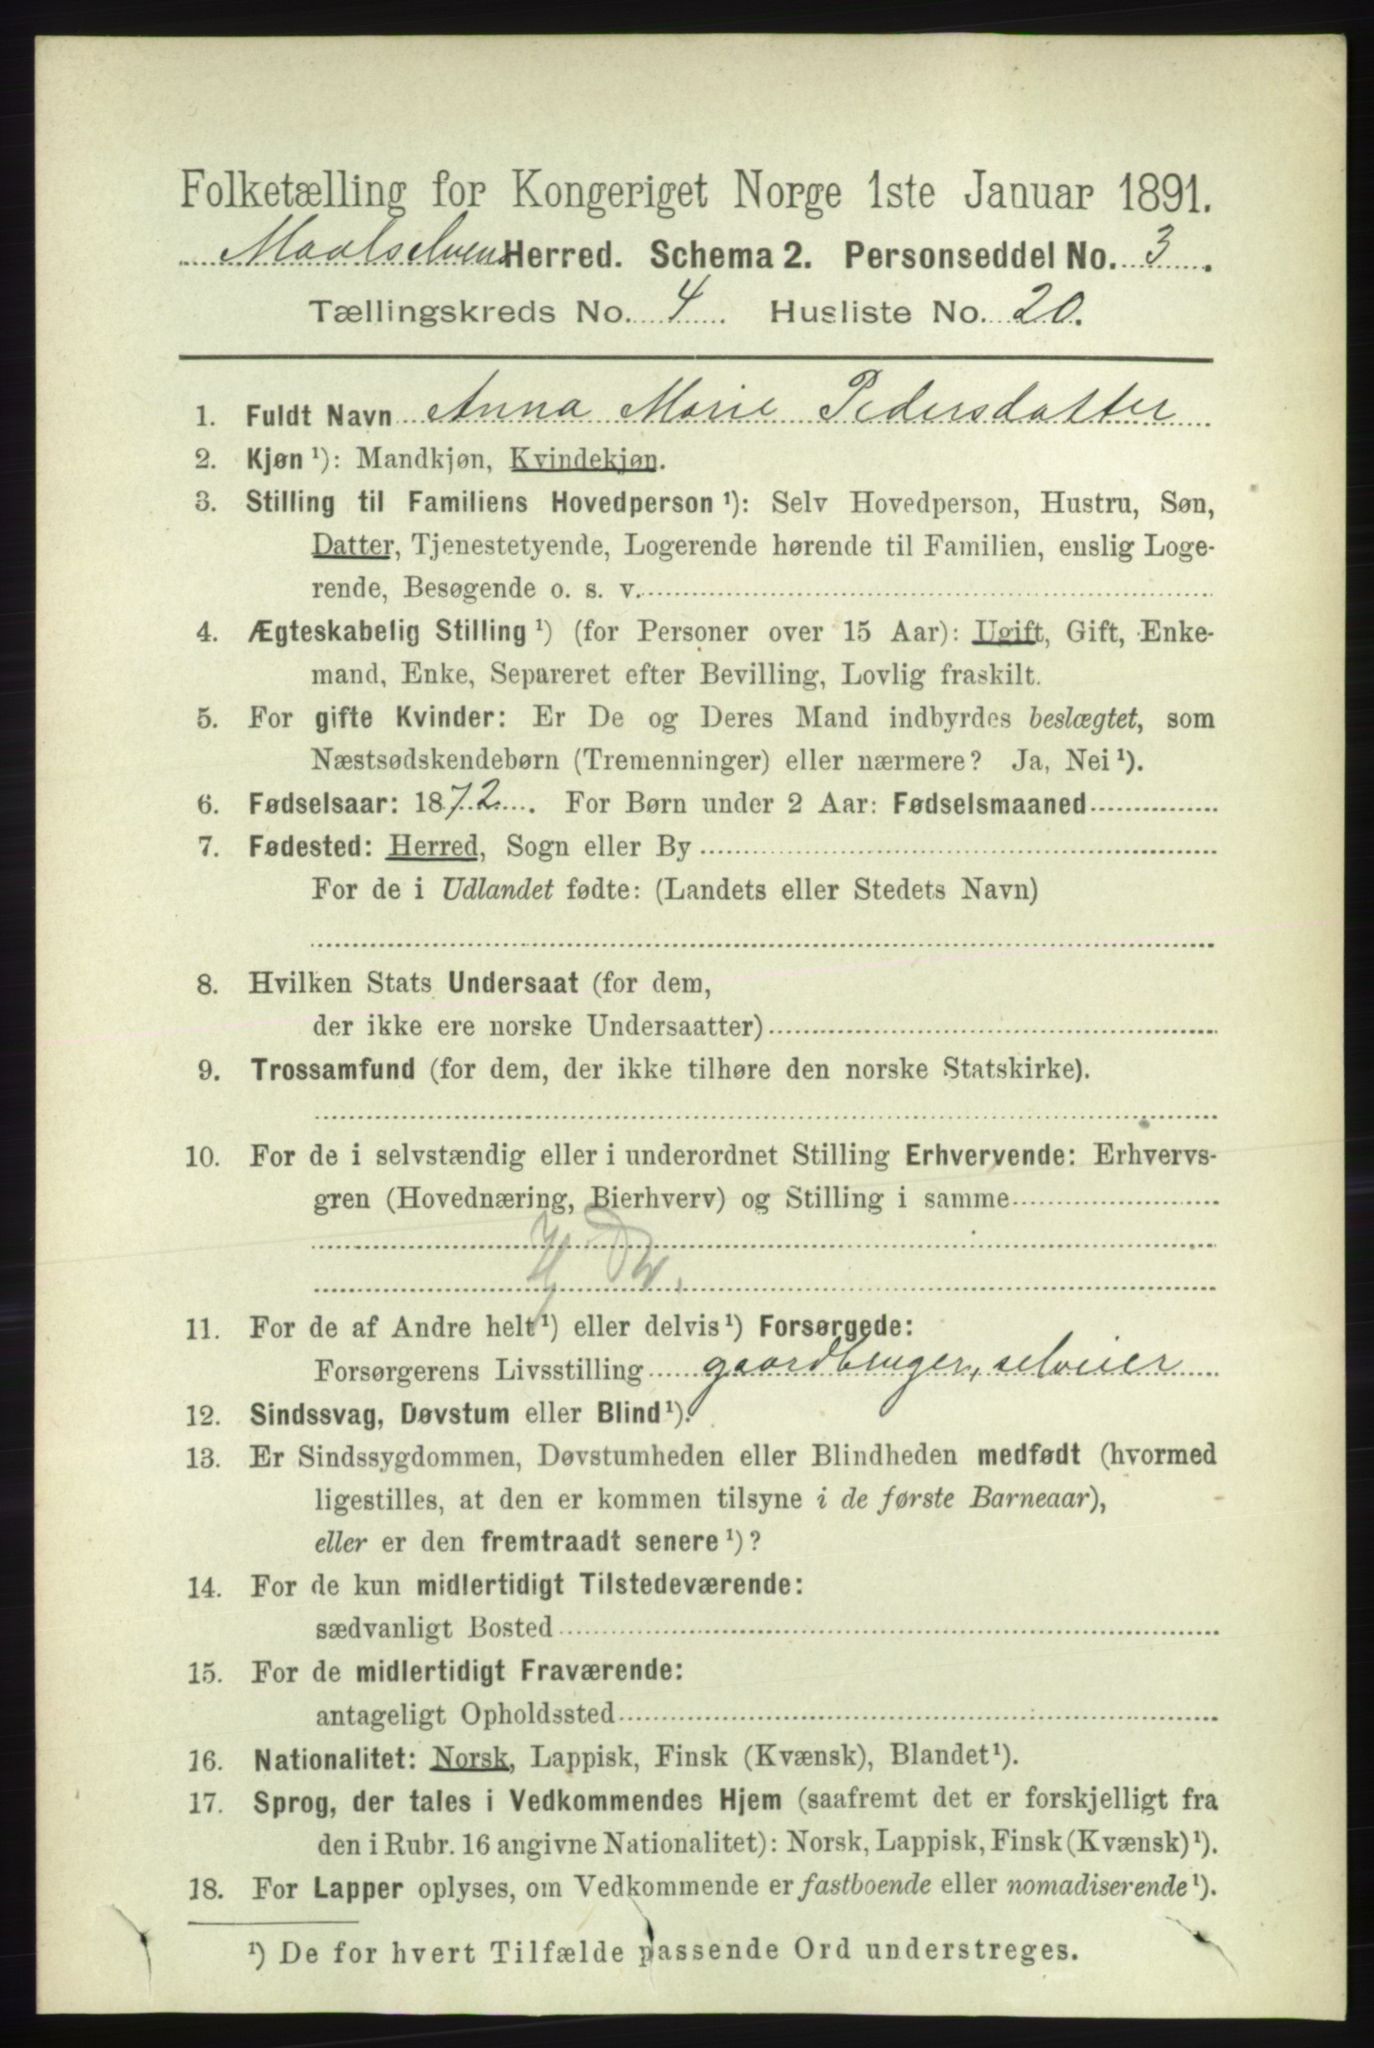 Folketælling for Kongeriget Norge 1ste Januar 1891.
Maalselvens Herred. Schema 2. Personseddel No. 3.
Tællingskreds No. 4 Husliste No. 20.
1. Fuldt Navn Anna Marie Pedersdatter
2. Kjøn ¹): Mandkjøn, Kvindekjøn.
3. Stilling til Familiens Hovedperson ¹): Selv Hovedperson, Hustru, Søn,
Datter, Tjenestetyende, Logerende hørende til Familien, enslig Loge-
rende, Besøgende o. s. v.
4. Ægteskabelig Stilling ¹) (for Personer over 15 Aar): Ugift, Gift, Enke-
mand, Enke, Separeret efter Bevilling, Lovlig fraskilt.
5. For gifte Kvinder: Er De og Deres Mand indbyrdes beslægtet, som
Næstsødskendebørn (Tremenninger) eller nærmere? Ja, Nei ¹).
6. Fødselsaar: 1872. For Børn under 2 Aar: Fødselsmaaned
7. Fødested: Herred, Sogn eller By
For de i Udlandet fødte: (Landets eller Stedets Navn)
8. Hvilken Stats Undersaat (for dem,
der ikke ere norske Undersaatter)
9. Trossamfund (for dem, der ikke tilhøre den norske Statskirke).
10. For de i selvstændig eller i underordnet Stilling Erhvervende: Erhvervs-
gren (Hovednæring, Bierhverv) og Stilling i samme
11. For de af Andre helt ¹) eller delvis ¹) Forsørgede:
Forsørgerens Livsstilling gaardbruger, selveier
12. Sindssvag, Døvstum eller Blind ¹).
13. Er Sindssygdommen, Døvstumheden eller Blindheden medfødt (hvormed
ligestilles, at den er kommen tilsyne i de første Barneaar),
eller er den fremtraadt senere ¹)?
14. For de kun midlertidigt Tilstedeværende:
sædvanligt Bosted
15. For de midlertidigt Fraværende:
antageligt Opholdssted
16. Nationalitet: Norsk, Lappisk, Finsk (Kvænsk), Blandet ¹).
17. Sprog, der tales i Vedkommendes Hjem (saafremt det er forskjelligt fra
den i Rubr. 16 angivne Nationalitet): Norsk, Lappisk, Finsk (Kvænsk) ¹).
18. For Lapper oplyses, om Vedkommende er fastboende eller nomadiserende ¹).
¹) De for hvert Tilfælde passende Ord understreges.